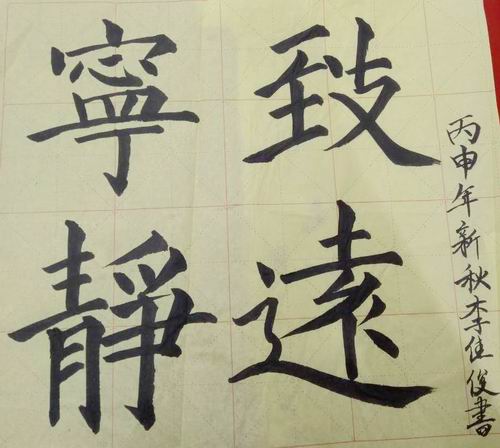 寧靜
致遠
丙申年新秋李佳俊書